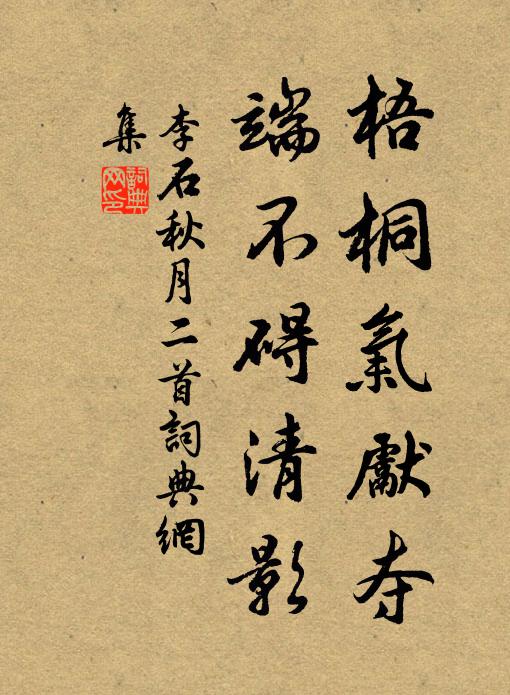 梧桐氣獻夺
端不碍清影
李石秋月二首詞典網
集
詞典
网印